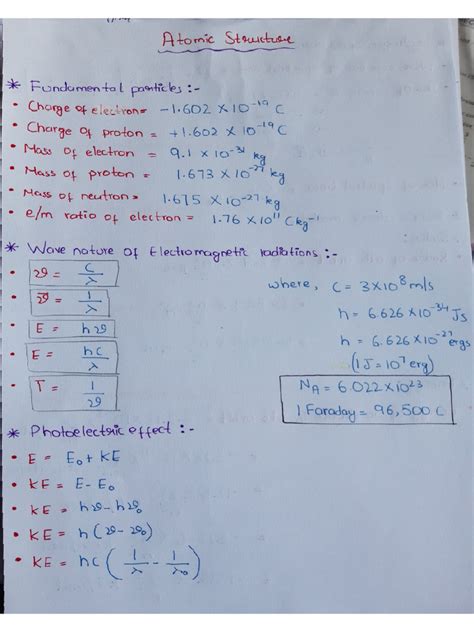 Atomic Structure
* Fundamental particles :-
• Charge of electron = -1.602 × 10⁻¹⁹ C
• Charge of proton = +1.602 × 10⁻¹⁹ C
• Mass of electron = 9.1 × 10⁻³¹ kg
• Mass of proton = 1.673 × 10⁻²⁷ kg
• Mass of neutron = 1.675 × 10⁻²⁷ kg
• e/m ratio of electron = 1.76 × 10¹¹ C kg⁻¹
* Wave nature of Electromagnetic radiations :-
• ν = c/λ
where, c = 3×10⁸ m/s
• ν̄ = 1/λ
h = 6.626 × 10⁻³⁴ Js
• E = hν
h = 6.626 × 10⁻²⁷ ergs
• E = hc/λ
(1 J = 10⁷ erg)
• T = 1/ν
N_A = 6.022 × 10²³
1 Faraday = 96,500 C
* Photoelectric effect :-
• E = E₀ + KE
• KE = E - E₀
• KE = hν - hν₀
• KE = h(ν - ν₀)
• KE = hc(1/λ - 1/λ₀)